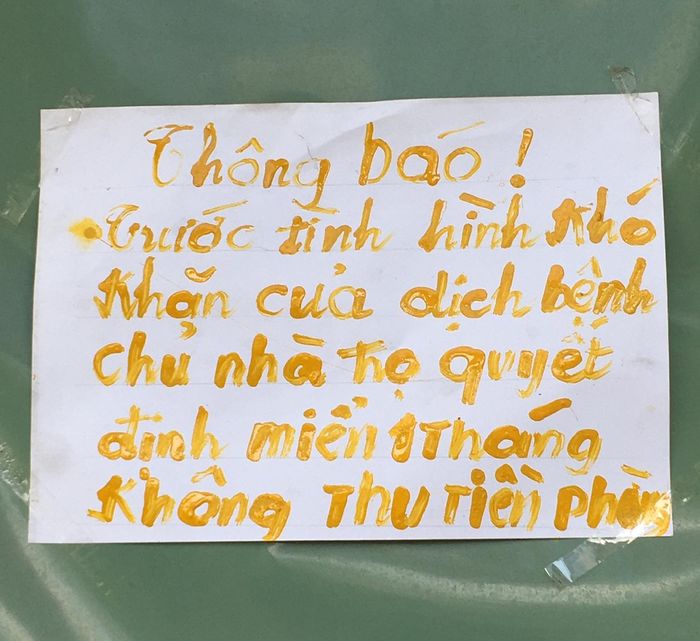 Thông báo !
Trước tình hình khó
khăn của dịch bệnh
chủ nhà trọ quyết
định miễn 1 tháng
không thu tiền